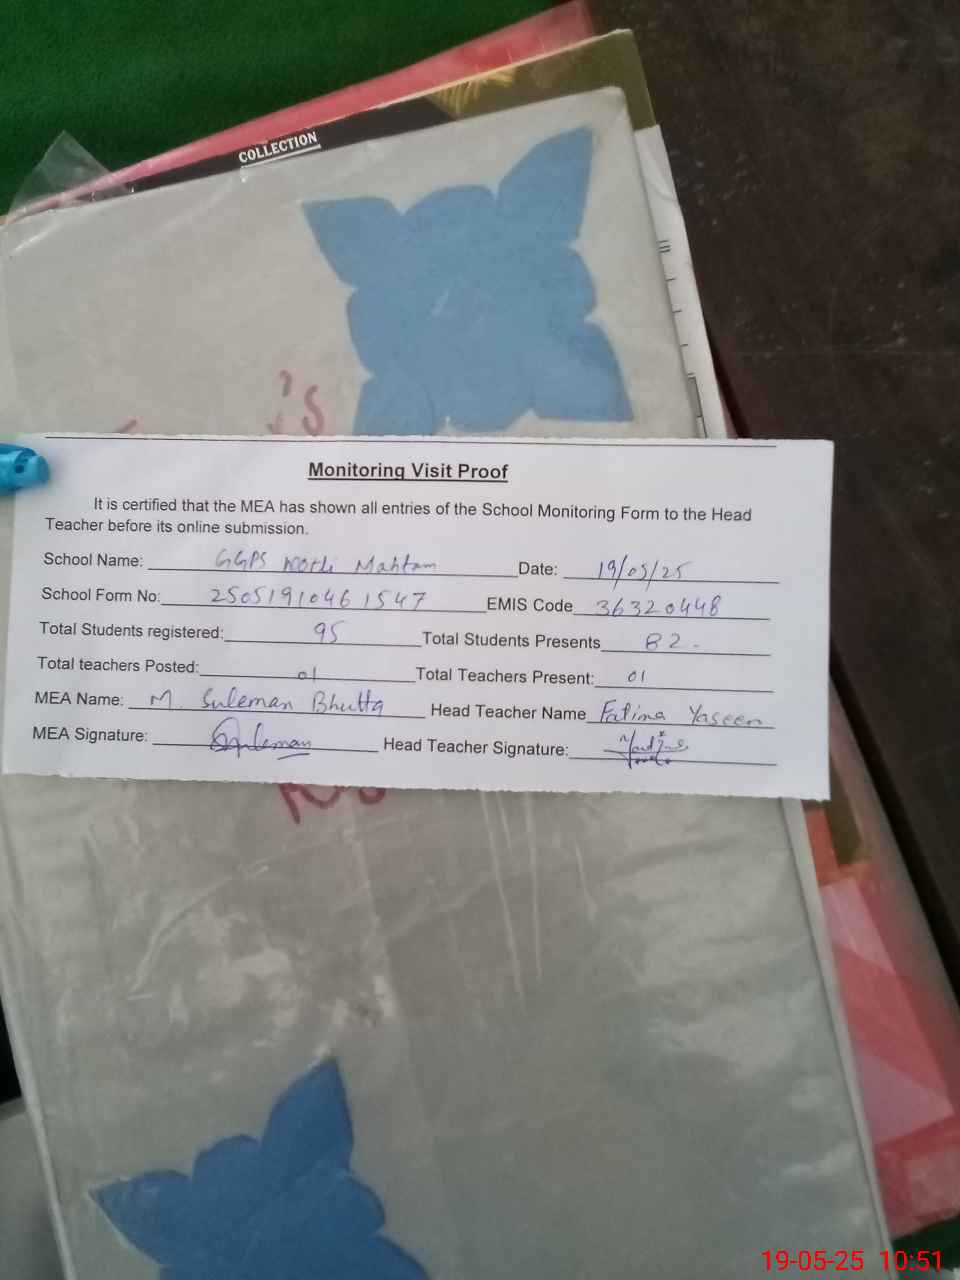 COLLECTION
's
Monitoring Visit Proof
It is certified that the MEA has shown all entries of the School Monitoring Form to the Head
Teacher before its online submission.
School Name: GGPS Kotli Mahtam Date: 19/05/25
School Form No: 2505191046 1547 EMIS Code 36320448
Total Students registered: 95 Total Students Presents 82.
Total teachers Posted: 01 Total Teachers Present: 01
MEA Name: M. Suleman Bhutta Head Teacher Name Fatima Yaseen
MEA Signature: Suleman Head Teacher Signature:
19-05-25 10:51